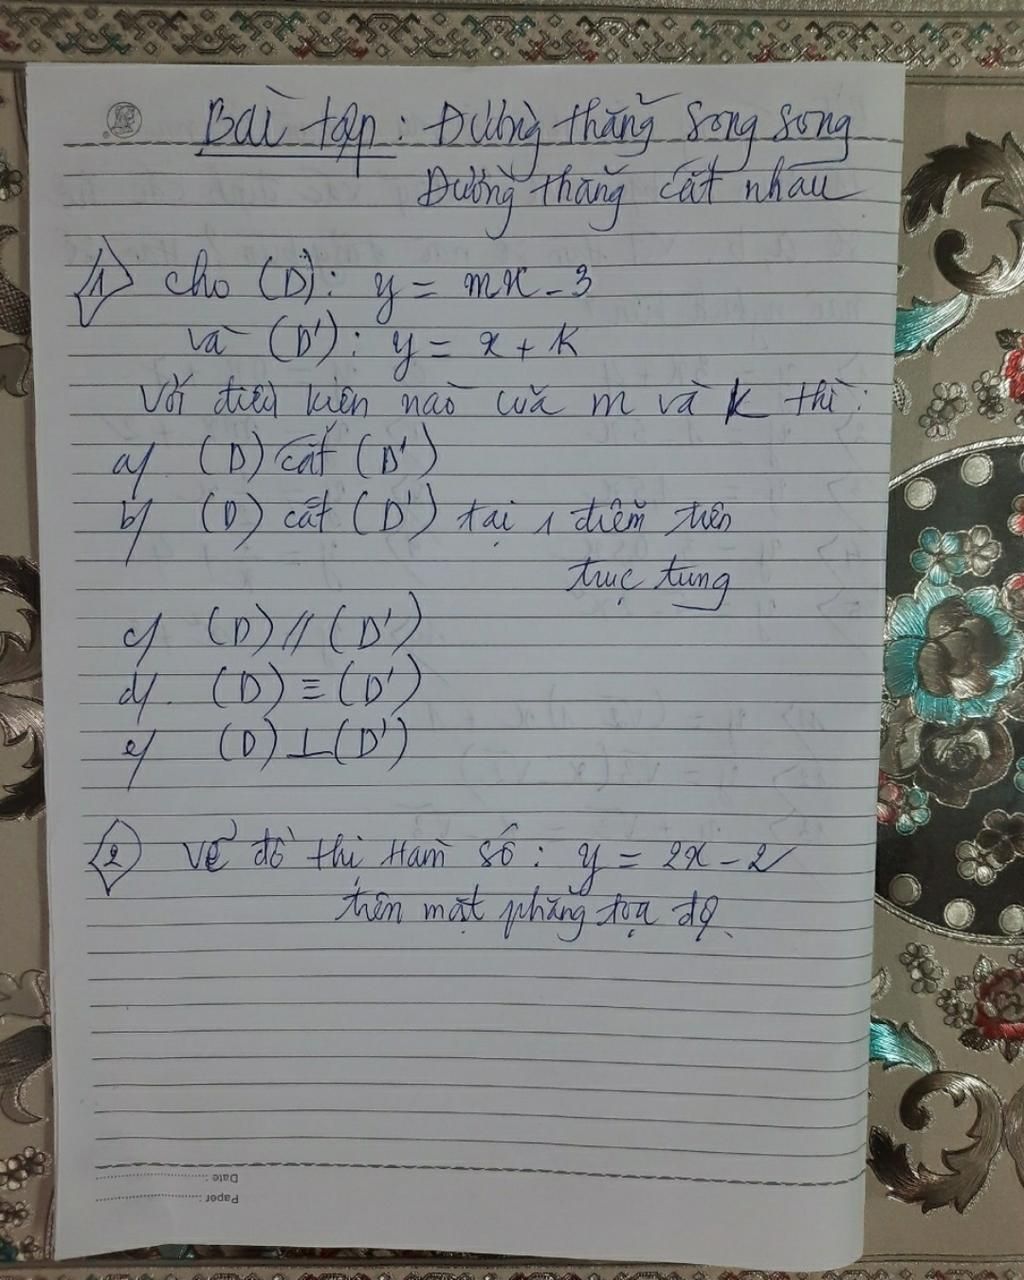 Bài tập: Đường thẳng song song
Đường thẳng cắt nhau
1 cho (D): y = mx - 3
và (D'): y = x + k
Với điều kiện nào của m và k thì:
a/ (D) cắt (D')
b/ (D) cắt (D') tại 1 điểm trên
trục tung
c/ (D) // (D')
d/ (D) ≡ (D')
e/ (D) ⊥ (D')
2 Vẽ đồ thị hàm số: y = 2x - 2
trên mặt phẳng tọa độ.
Date :
Paper :